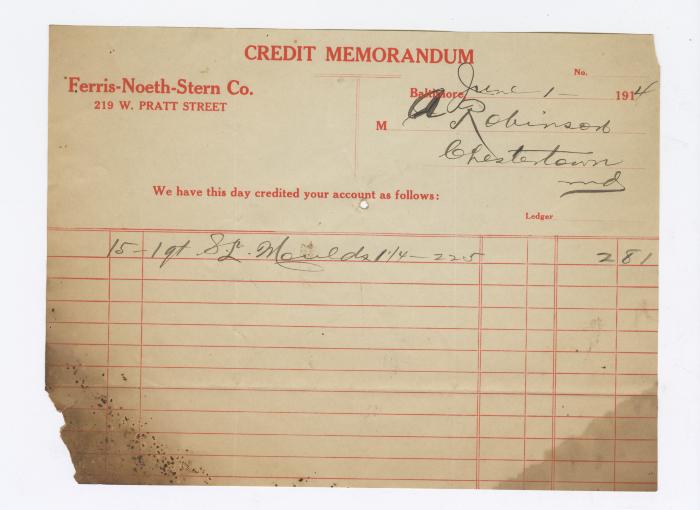 CREDIT MEMORANDUM
No.
Ferris-Noeth-Stern Co.
219 W. PRATT STREET
Baltimore, June 1 - 1914
M A Robinson
Chestertown
Md
We have this day credited your account as follows:
Ledger
15 - 1 qt Moulds 1 1/4 - 225 2 81